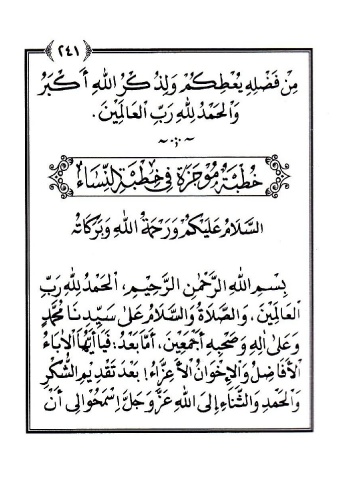 ٢٤١
مِنْ فَضْلِهِ يُعْطِكُمْ وَلَذِكْرُ اللهِ أَكْبَرُ
وَالْحَمْدُ لِلّٰهِ رَبِّ الْعَالَمِيْنَ.
خُطْبَةٌ مُوْجَزَةٌ فِى خِطْبَةِ النِّسَاءِ
السَّلَامُ عَلَيْكُمْ وَرَحْمَةُ اللهِ وَبَرَكَاتُهُ
بِسْمِ اللهِ الرَّحْمٰنِ الرَّحِيْمِ، الْحَمْدُ لِلّٰهِ رَبِّ
الْعَالَمِيْنَ، وَالصَّلَاةُ وَالسَّلَامُ عَلَى سَيِّدِنَا مُحَمَّدٍ
وَعَلَى اٰلِهِ وَصَحْبِهِ أَجْمَعِيْنَ. أَمَّا بَعْدُ: فَيَاأَيُّهَا الْاٰبَاءُ
الْأَفَاضِلُ وَالْإِخْوَانُ الْأَعِزَّاءُ! بَعْدَ تَقْدِيْمِ الشُّكْرِ
وَالْحَمْدِ وَالثَّنَاءِ إِلَى اللهِ عَزَّ وَجَلَّ اِسْمَحُوْا لِى أَنْ